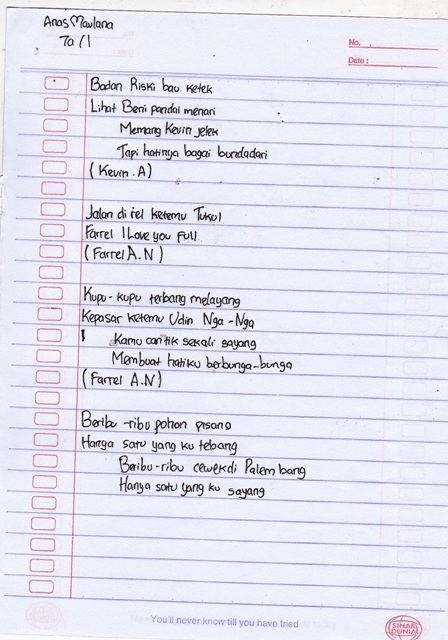 Anas Maulana
7a/1
No.
Date :
Badan Riski bau ketek
Lihat Beni pandai menari
Memang Kevin jelek
Tapi hatinya bagai bundadari
(Kevin.A)
Jalan di rel ketemu Tukul
Farrel I Love you Full
(Farrel A.N)
Kupu-kupu terbang melayang
Kepasar ketemu Udin Nga-Nga
Kamu cantik sekali sayang
Membuat hatiku berbunga-bunga
(Farrel A.N)
Beribu-ribu pohon pisang
Hanya satu yang ku tebang
Beribu-ribu cewekdi Palembang
Hanya satu yang ku sayang
You'll never know till you have tried
SINAR DUNIA